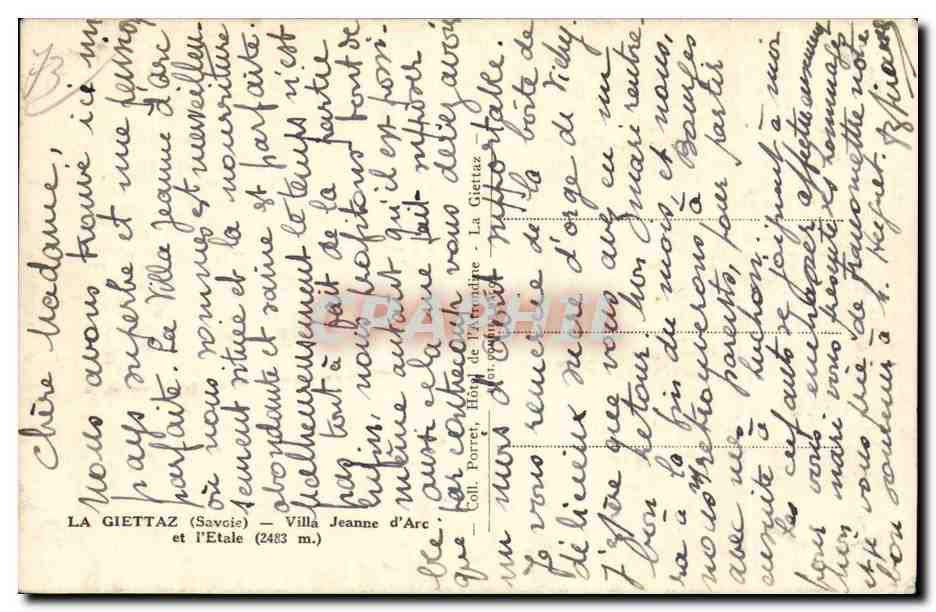 Chère Madame,
Nous avons trouvé ici un
pays superbe et une pension
parfaite. La Villa Jeanne d'Arc
où nous sommes est merveilleu-
sement située et la nourriture
abondante et saine est parfaite.
Malheureusement le temps n'est
pas tout à fait de la partie
Enfin, nous profitons tout de
même autant qu'il est possi-
ble. aussi cela me fait supposer
que par contrecoup vous devez avoir
un mois d'août supportable.
Je vous remercie de la boîte de
délicieux sucre d'orge de Vichy
J'espère que vous avez eu un
bon retour. Mon mari rentre-
ra à la fin du mois et nous,
nous retrouverons à
avec mes parents, pour partir
ensuite à
Les enfants se joignent à moi
pour vous embrasser affectueusement
Mon mari vous présente ses hommages
et je vous prie de transmettre notre
bon souvenir à
LA GIETTAZ (Savoie) — Villa Jeanne d'Arc
et l'Etale (2483 m.)
Coll. Porret, Hôtel de l'Arrondine - La Giettaz
CPAPHIL